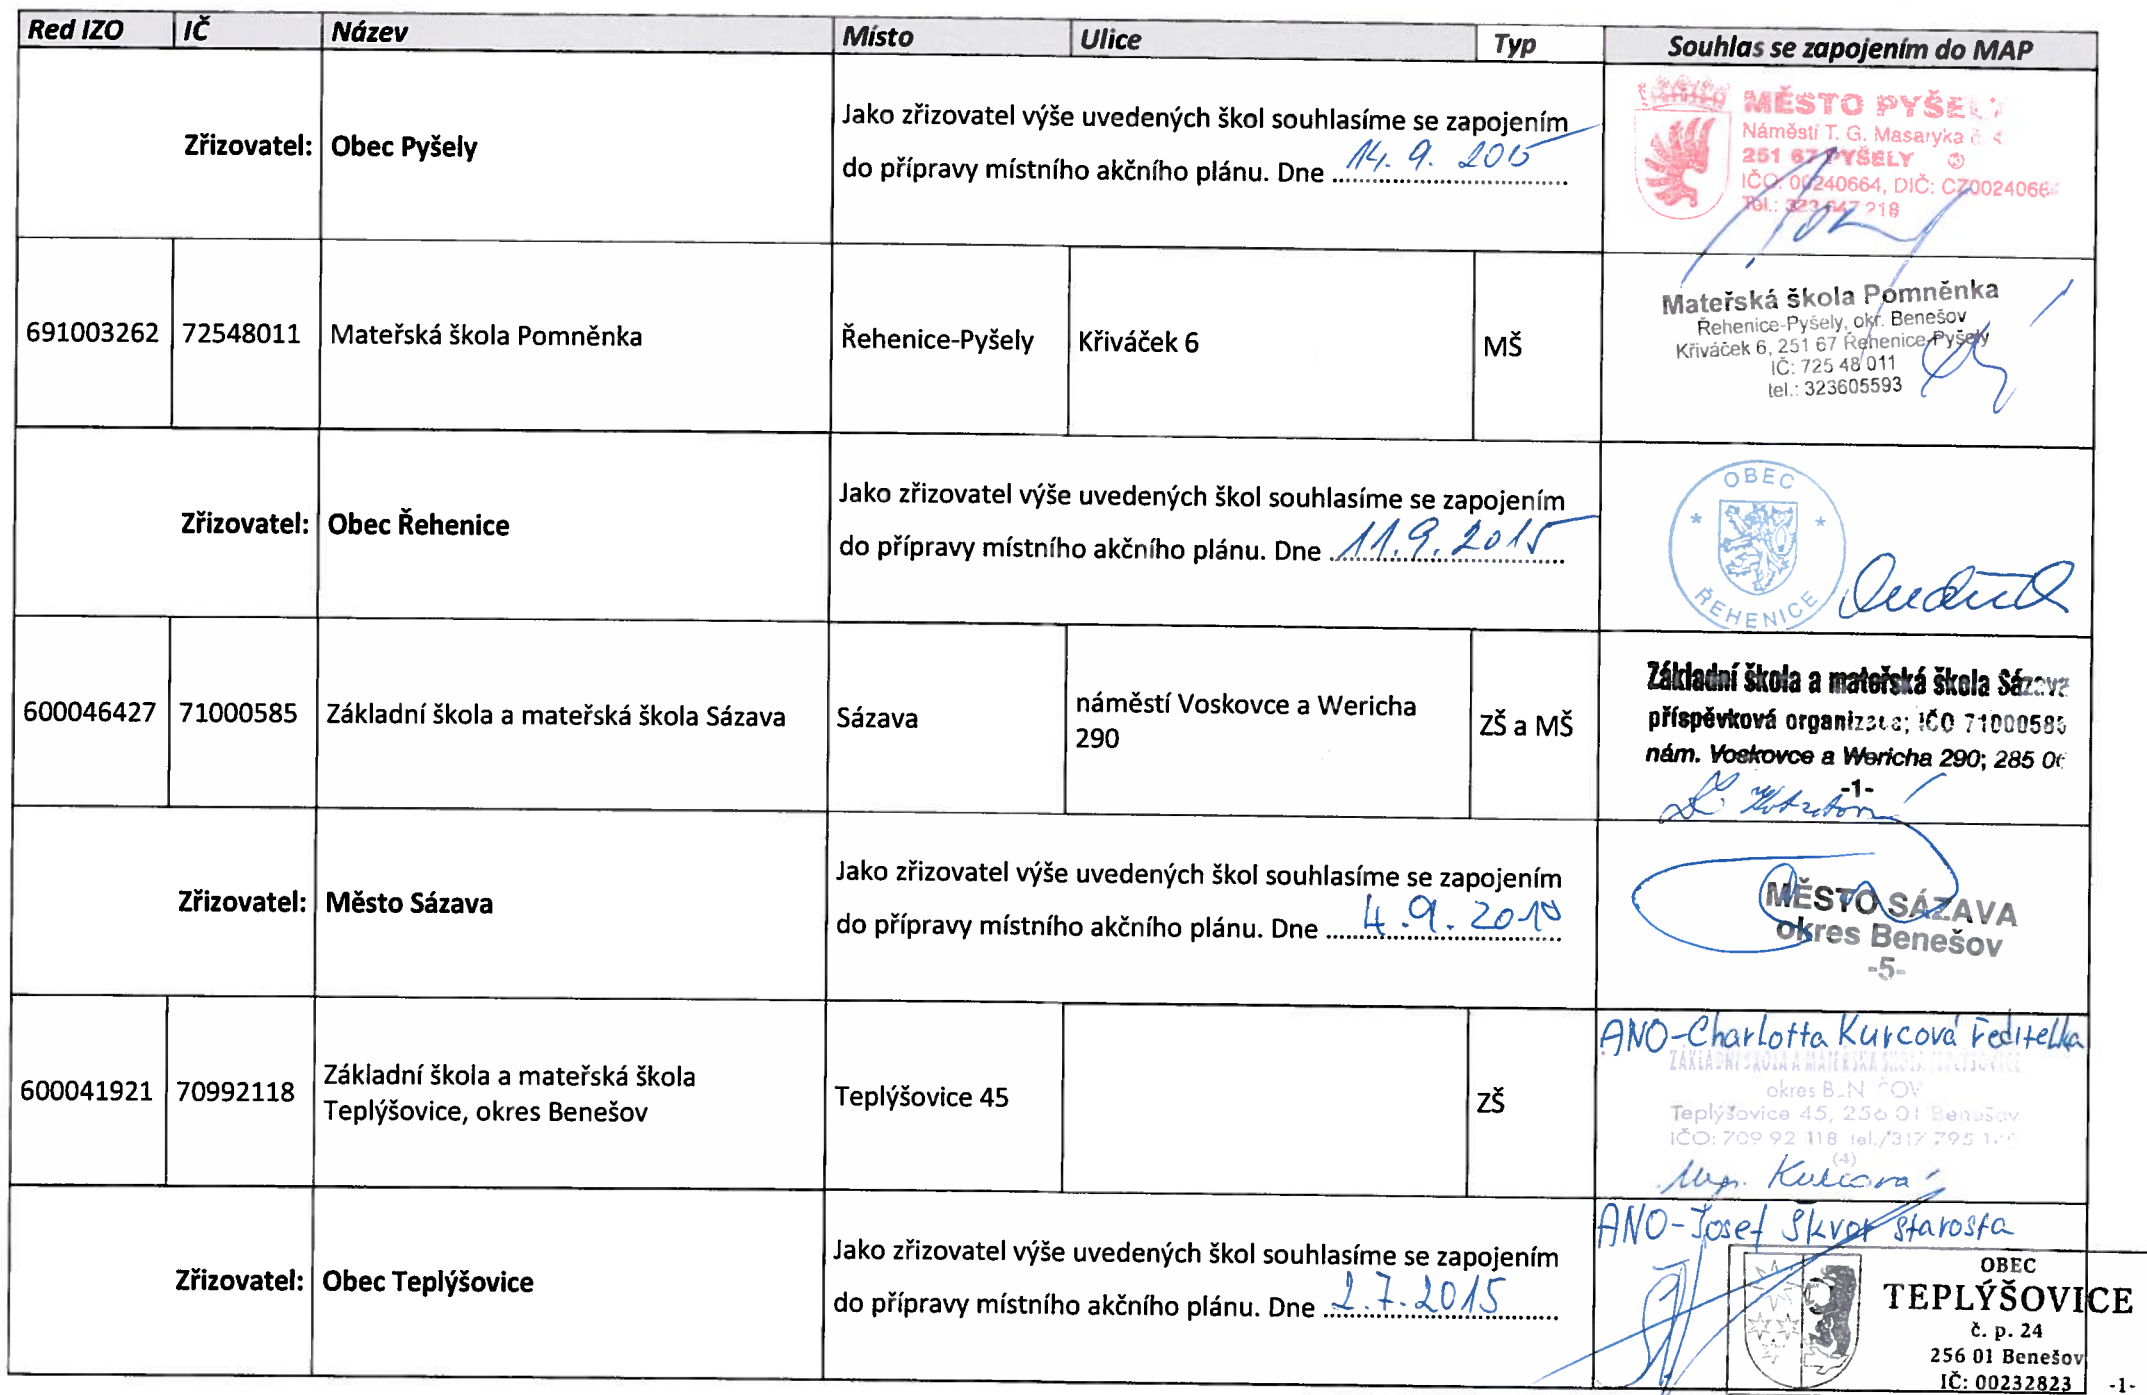 Red IZO IČ Název Místo Ulice Typ Souhlas se zapojením do MAP
Zřizovatel: Obec Pyšely
Jako zřizovatel výše uvedených škol souhlasíme se zapojením
do přípravy místního akčního plánu. Dne 14. 9. 2015
MĚSTO PYŠELY
Náměstí T. G. Masaryka č. 4
251 67 PYŠELY
IČO: 00240664, DIČ: CZ00240664
Tel.: 323 647 218
691003262 72548011 Mateřská škola Pomněnka Řehenice-Pyšely Křiváček 6 MŠ
Mateřská škola Pomněnka
Řehenice-Pyšely, okr. Benešov
Křiváček 6, 251 67 Řehenice-Pyšely
IČ: 725 48 011
tel.: 323605593
Zřizovatel: Obec Řehenice
Jako zřizovatel výše uvedených škol souhlasíme se zapojením
do přípravy místního akčního plánu. Dne 11.9.2015
OBEC
* *
ŘEHENICE
600046427 71000585 Základní škola a mateřská škola Sázava Sázava náměstí Voskovce a Wericha
290 ZŠ a MŠ
Základní škola a mateřská škola Sázava
příspěvková organizace; IČO 71000585
nám. Voskovce a Wericha 290; 285 06
-1-
Zřizovatel: Město Sázava
Jako zřizovatel výše uvedených škol souhlasíme se zapojením
do přípravy místního akčního plánu. Dne 4.9.2015
MĚSTO SÁZAVA
okres Benešov
-5-
600041921 70992118 Základní škola a mateřská škola
Teplýšovice, okres Benešov Teplýšovice 45 ZŠ
ANO-Charlotta Kurcová ředitelka
ZÁKLADNÍ ŠKOLA A MATEŘSKÁ ŠKOLA TEPLÝŠOVICE
okres BENEŠOV
Teplýšovice 45, 256 01 Benešov
IČO: 709 92 118 tel./317 795
(4)
Mgr. Kurcová
Zřizovatel: Obec Teplýšovice
Jako zřizovatel výše uvedených škol souhlasíme se zapojením
do přípravy místního akčního plánu. Dne 2.7.2015
ANO-Josef Škvor starosta
OBEC
TEPLÝŠOVICE
č. p. 24
256 01 Benešov
IČ: 00232823 -1-